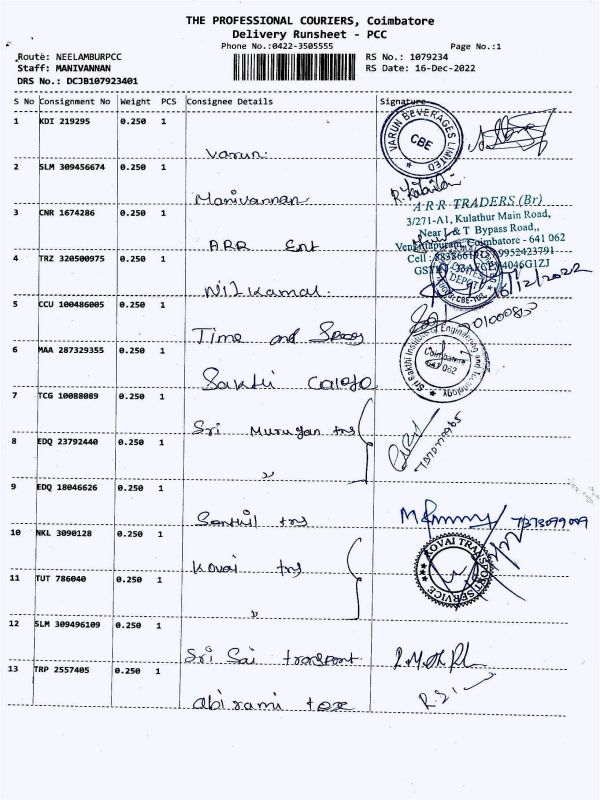 THE PROFESSIONAL COURIERS, Coimbatore
Delivery Runsheet - PCC
Phone No.:0422-3505555 Page No.:1
Route: NEELAMBURPCC RS No.: 1079234
Staff: MANIVANNAN RS Date: 16-Dec-2022
DRS No.: DCJB107923401
S No Consignment No Weight PCS Consignee Details Signature
1 KDI 219295 0.250 1
Varun.
VARUN BEVERAGES LIMITED
CBE
2 SLM 309456674 0.250 1
Manivannan
3 CNR 1674286 0.250 1
ARR Ent
A R R TRADERS (Br)
3/271-A1, Kulathur Main Road,
Near L & T Bypass Road,,
Coimbatore - 641 062
4 TRZ 320500975 0.250 1
Nilkamal.
16/12/2022
5 CCU 100486005 0.250 1
Time and
6 MAA 287329355 0.250 1
Sakthi
Sri Sakthi Institute of Engineering and Technology
Coimbatore
641 062
7 TCG 10088089 0.250 1
Sri Murugan trs
8 EDQ 23792440 0.250 1
"
9 EDQ 18046626 0.250 1
Senthil trs
10 NKL 3090128 0.250 1
Kovai trs
KOVAI TRANSPORT SERVICE
11 TUT 786040 0.250 1
"
12 SLM 309496109 0.250 1
Sri Sai transport
13 TRP 2557405 0.250 1
abirami tex